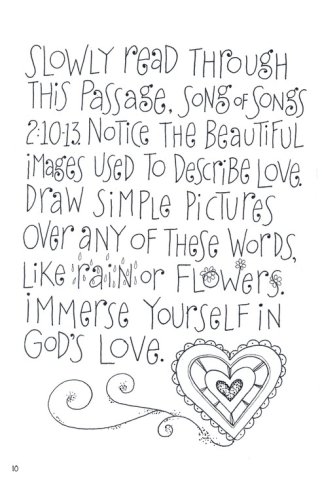 Slowly read through
this passage, Song of Songs
2:10-13. Notice the beautiful
images used to describe love.
Draw simple pictures
over any of these words,
like rain or flowers.
Immerse yourself in
God's love.
10